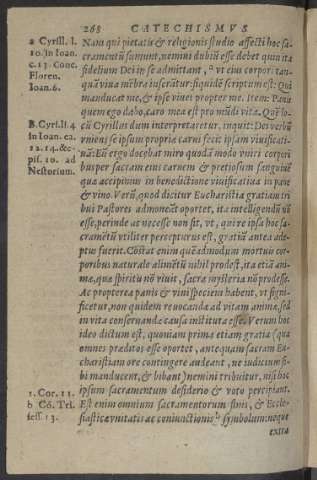 268 CATECHISMVS
a Cyrill. l.
10. in Ioan.
c. 13. Conc.
Floren.
Ioan. 6.
B. Cyril. li. 4
in Ioan. ca.
12. 14. &
pis. 10. ad
Nestorium.
1. Cor. 11.
b Cō. Tri.
sess. 13.
Nam qui pietatis & religionis studio affecti hoc sa-
cramentū sumunt, nemini dubiū esse debet quin ita
filedium Dei in se admittant, a vt eius corpori tan-
quā viua mēbra inserātur: siquidē scriptum est: Qui
manducat me, & ipse viuet propter me. Item: Panis
quem ego dabo, caro mea est pro mūdi vita. Quē lo-
cū Cyrillus dum interpretaretur, inquit: Dei verbū
vniens se ipsum propriæ carni fecit ipsam viuificati-
uā: Eū ergo docebat miro quodā modo vniri corpori
bus per sacram eius carnem & pretiosum sanguinē
quæ accipimus in benedictione viuificatiua in pane
& vino. Verū, quod dicitur Eucharistia gratiam tri
bui Pastores admoneāt oportet, ita intelligendū nō
esse, perinde ac necesse non sit, vt, qui re ipsa hoc sa-
cramētū vtiliter percepturus est, gratiā antea ade-
ptus fuerit. Cōstat enim quēadmodum mortuis cor-
poribus naturale alimētū nihil prodest, ita etiā ani-
mæ, quæ spiritu nō viuit, sacra mysteria nō prodesse.
Ac propterea panis & vini speciem habent, vt signi-
ficetur, non quidem reuocandæ ad vitam animæ, sed
in vita conseruandæ causa instituta esse. Verum hoc
ideo dictum est, quoniam prima etiam gratia (qua
omnes præditos esse oportet, antequam sacram Eu-
charistiam ore contingere audeant, ne iudicium si-
bi manducent, & bibant) nemini tribuitur, nisi hoc
ipsum sacramentum desiderio & voto percipiant.
Est enim omnium sacramentorum finis, & Eccle-
siasticæ vnitatis ac coniunctionis b symbolum: neque
extra